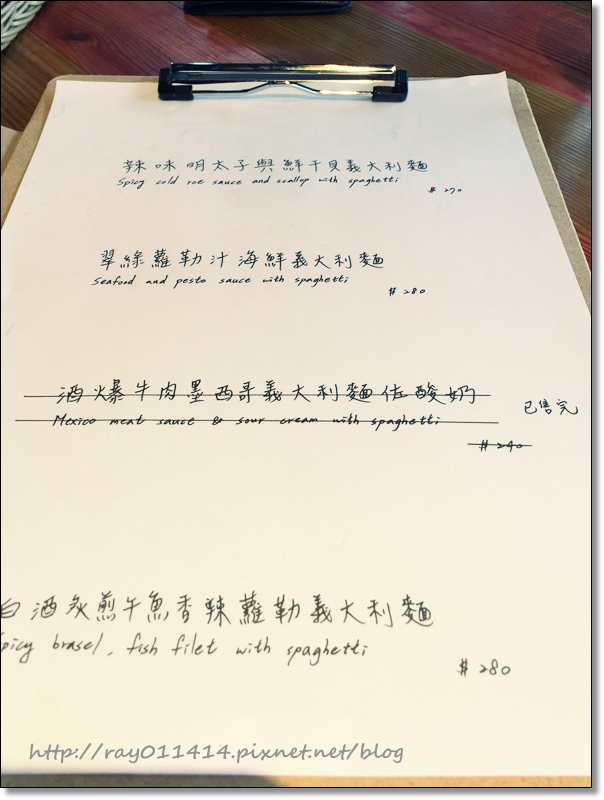 辣味明太子與鮮干貝義大利麵
Spicy cold roe sauce and scallop with spaghetti
# 270
翠綠蘿勒汁海鮮義大利麵
Seafood and pesto sauce with spaghetti
# 280
酒爆牛肉墨西哥義大利麵佐酸奶
已售完
Mexico meat sauce & sour cream with spaghetti
# 240
白酒炙煎午魚香辣蘿勒義大利麵
Spicy brasel, fish filet with spaghetti
# 280
http://ray011414.pixnet.net/blog